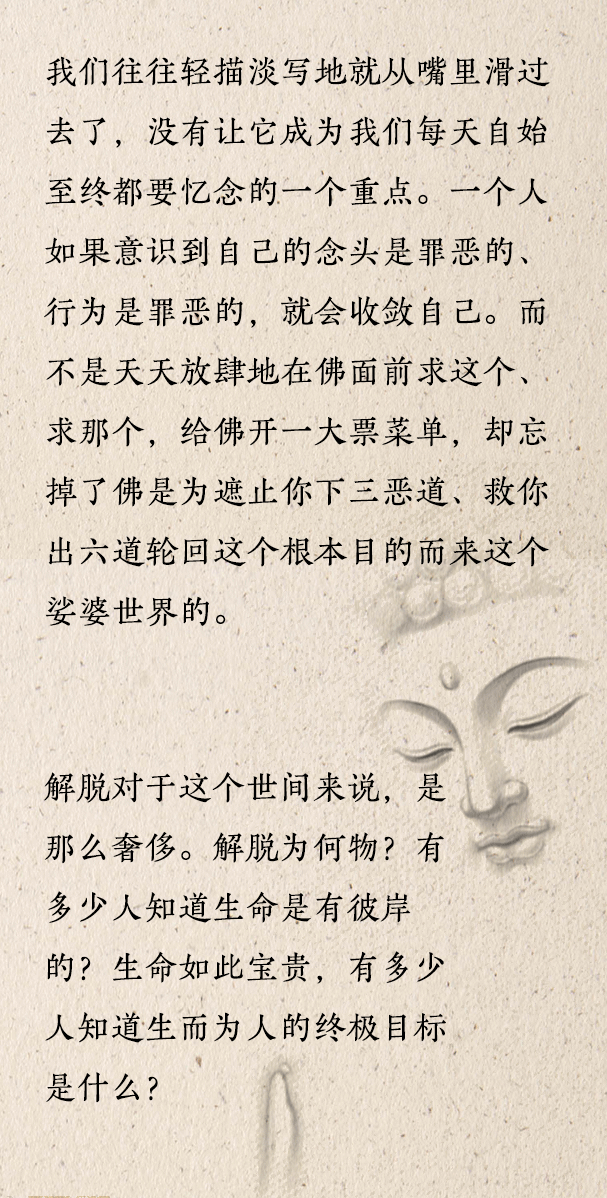 我们往往轻描淡写地就从嘴里滑过
去了，没有让它成为我们每天自始
至终都要忆念的一个重点。一个人
如果意识到自己的念头是罪恶的、
行为是罪恶的，就会收敛自己。而
不是天天放肆地在佛面前求这个、
求那个，给佛开一大票菜单，却忘
掉了佛是为遮止你下三恶道、救你
出六道轮回这个根本目的而来这个
娑婆世界的。
解脱对于这个世间来说，是
那么奢侈。解脱为何物？有
多少人知道生命是有彼岸
的？生命如此宝贵，有多少
人知道生而为人的终极目标
是什么？